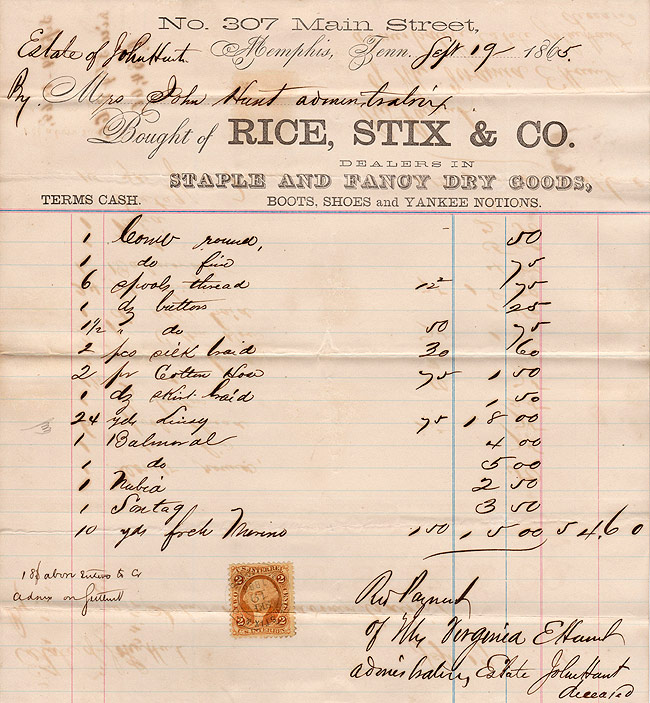 No. 307 Main Street,
Estate of John Hunt Memphis, Tenn. Sept 19 1865.
By Mrs John Hunt administratrix
Bought of RICE, STIX & CO.
DEALERS IN
STAPLE AND FANCY DRY GOODS,
TERMS CASH. BOOTS, SHOES and YANKEE NOTIONS.
1 Comb round, 50
1 do fine 75
6 spools thread 12½ 75
1 dz buttons 25
1½ " do 50 75
2 pcs silk braid 30 60
2 pr Cotton Hose 75 1 50
1 dz skirt braid 1 50
24 yds Linsey 75 18 00
1 Balmoral 4 00
1 do 5 00
1 Nubia 2 50
1 Sontag 3 50
10 yds french Merino 1 50 15 00 54.60
18 above
on
2 U.S. INTER. REV. 2
2 2
Rec Payment
of Mrs Virginia E Hunt
administratrix Estate John Hunt
deceased